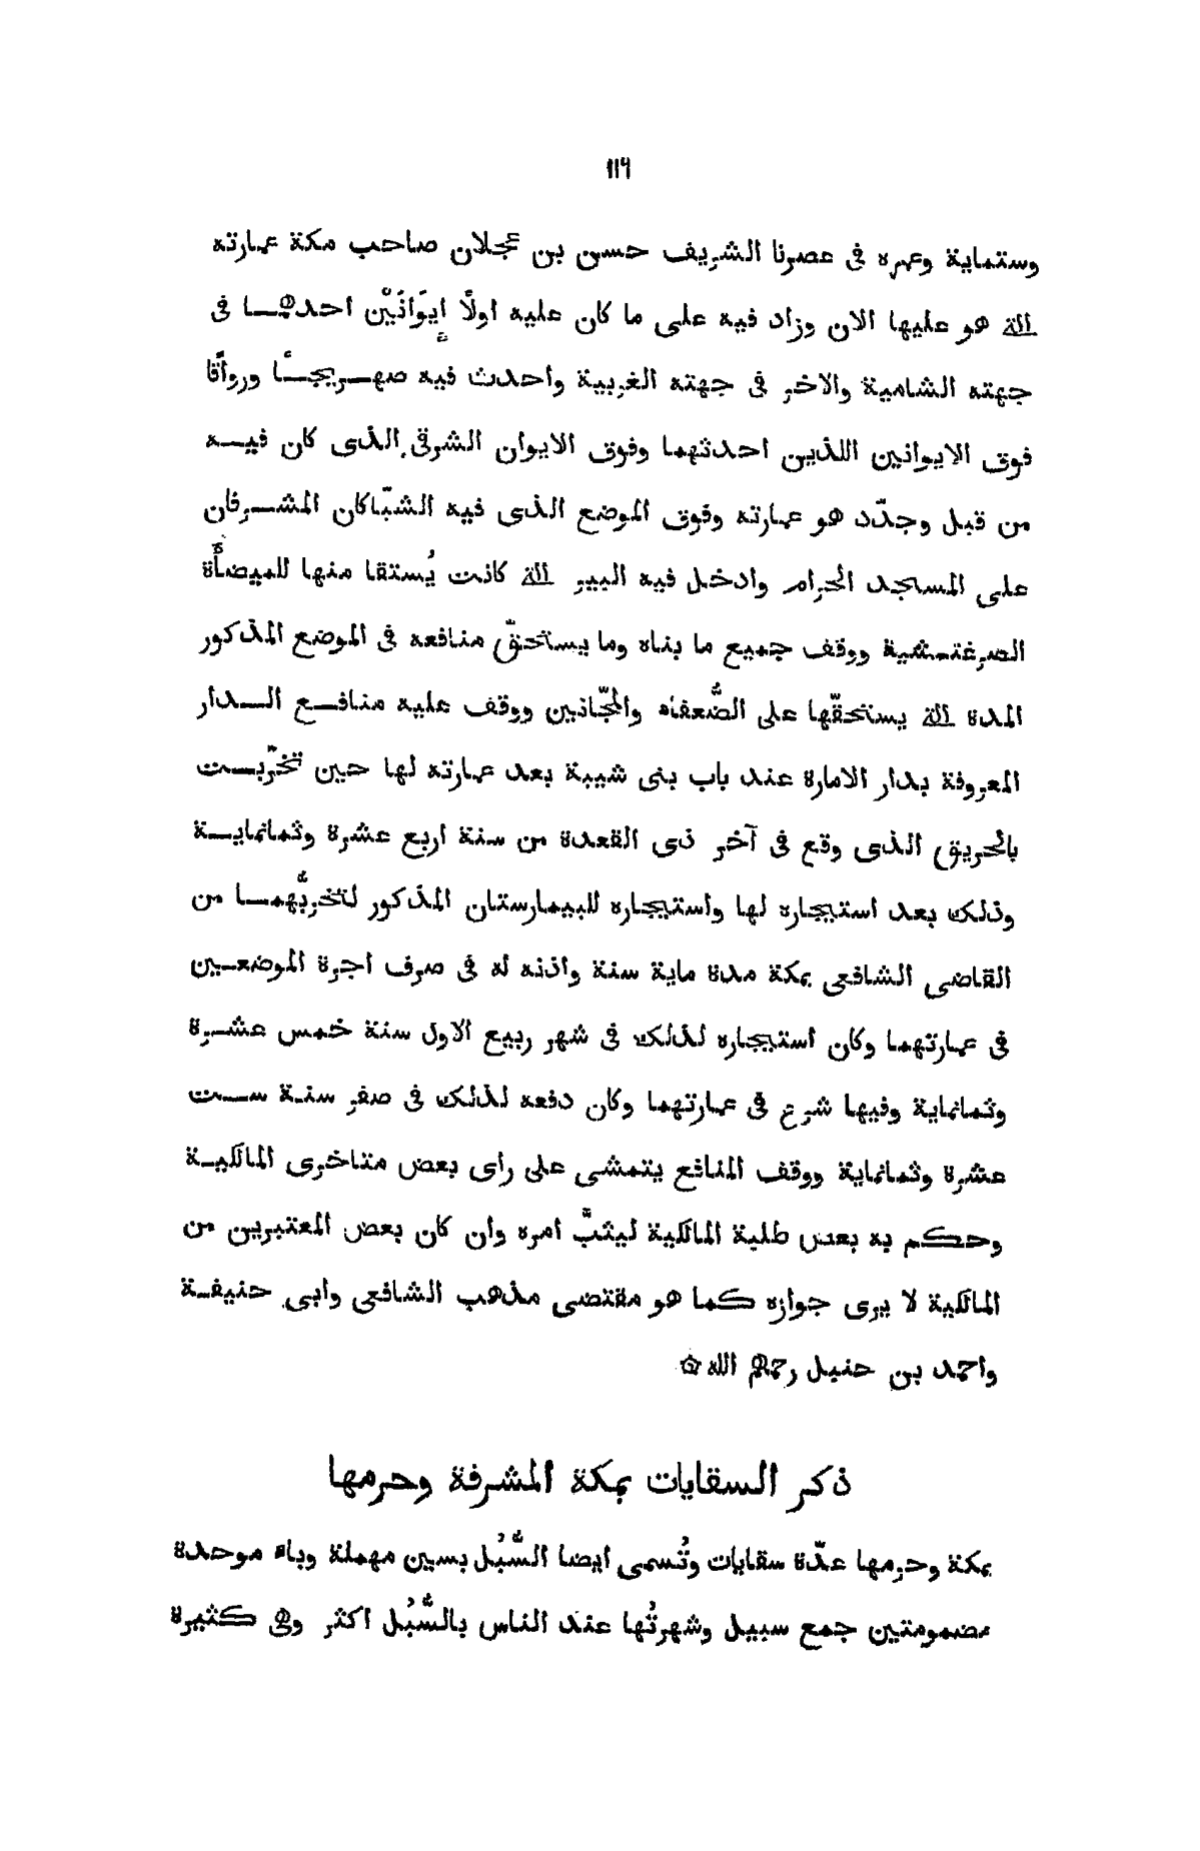 ١١٩
وستماية وعمره فى عصرنا الشريف حسن بن عجلان صاحب مكة عمارته
التى هو عليها الان وزاد فيه على ما كان عليه اولًا إيوَانَيْن احدهما فى
جهته الشامية والاخر فى جهته الغربية واحدث فيه صهريجًا ورواقًا
فوق الايوانين اللذين احدثهما وفوق الايوان الشرقى الذى كان فيه
من قبل وجدّد هو عمارته وفوق الموضع الذى فيه الشبّاكان المشرفان
على المسجد الحرام وادخل فيه البير التى كانت يُستقا منها للميضأة
الصرغتمشية ووقف جميع ما بناه وما يستحقّ منافعه فى الموضع المذكور
المدة التى يستحقّها على الضُّعفاء والمجّانين ووقف عليه منافع الدار
المعروفة بدار الامارة عند باب بنى شيبة بعد عمارته لها حين تخرّبت
بالحريق الذى وقع فى آخر ذى القعدة من سنة اربع عشرة وثمانماية
وذلك بعد استيجاره لها واستيجاره للبيمارستان المذكور لتخربُّهما من
القاضى الشافعى بمكة مدة ماية سنة واذنه له فى صرف اجرة الموضعين
فى عمارتهما وكان استيجاره لذلك فى شهر ربيع الاول سنة خمس عشرة
وثمانماية وفيها شرع فى عمارتهما وكان دفعه لذلك فى صفر سنة ست
عشرة وثمانماية ووقف المنافع يتمشى على راى بعض متاخرى المالكية
وحكم به بعض طلبة المالكية ليثبَّ امره وان كان بعض المعتبرين من
المالكية لا يرى جوازه كما هو مقتضى مذهب الشافعى وابى حنيفة
واحمد بن حنبل رحمهم الله ۞
ذكر السقايات بمكة المشرفة وحرمها
بمكة وحرمها عدّة سقايات وتُسمى ايضا السُّبُل بسين مهملة وباء موحدة
مضمومتين جمع سبيل وشهرتُها عند الناس بالسُّبُل اكثر وهى كثيرة